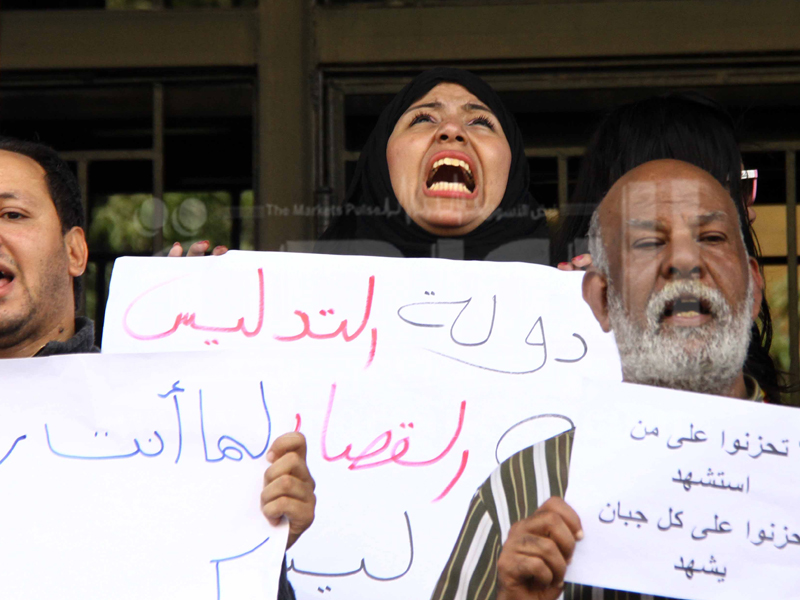 The Markets Pulse
دولة التدليس
القصا
ليد
لما أنت
تحزنوا على من
استشهد
حزنوا على كل جبان
يشهد